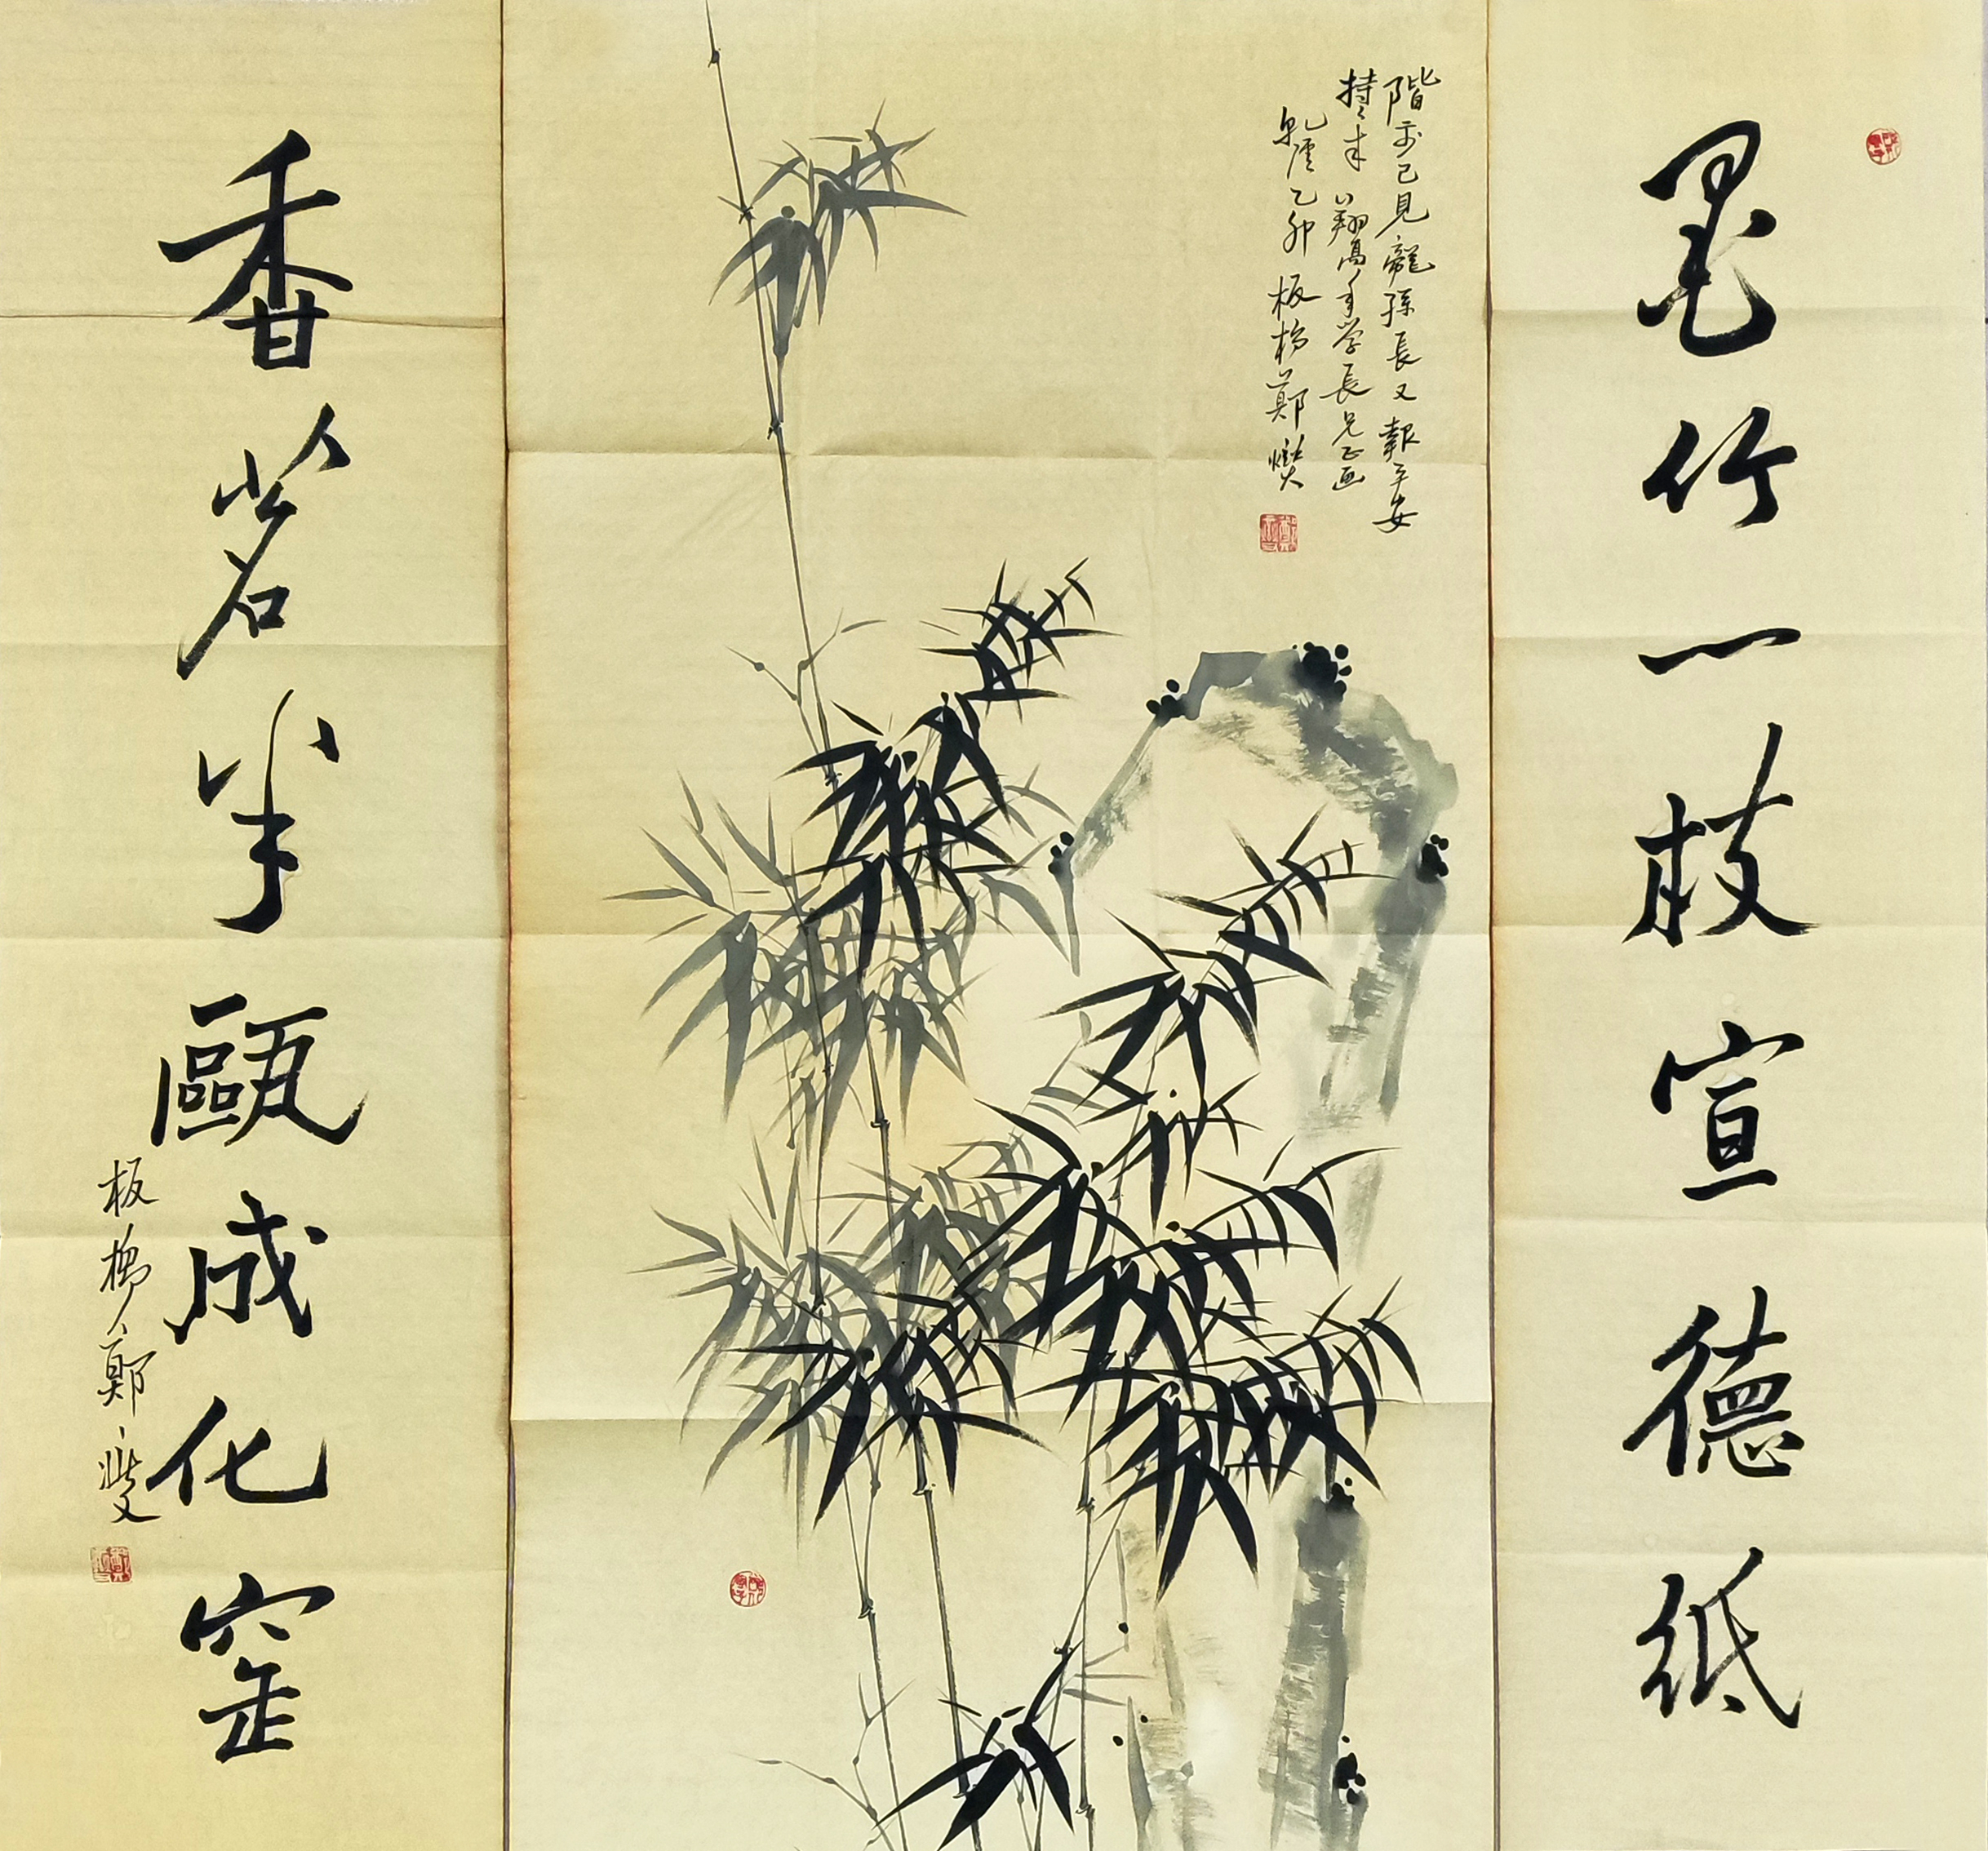 墨竹一枝宣德纸
階前已見龍孫長又報平安
特特来 翔高年学長兄正画
乾隆乙卯 板桥鄭燮
香茗半甌成化窑
板橋鄭燮